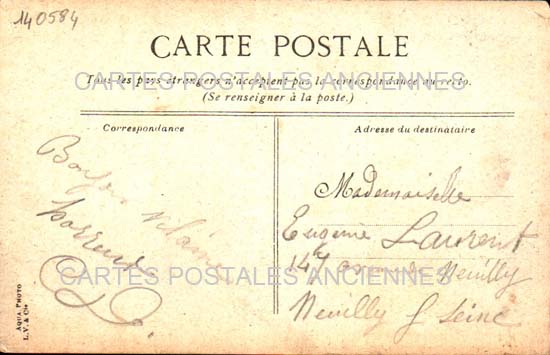 140584
CARTE POSTALE
Tous les pays étrangers n'acceptent pas la correspondance au recto.
CARTES POSTALES ANCIENNES
(Se renseigner à la poste.)
Correspondance
Adresse du destinataire
Bonjour
Mademoiselle
Eugénie Laurent
147 de Neuilly
CARTES POSTALES ANCIENNES
Neuilly S Seine
AQUA PHOTO
L. V. & Cie